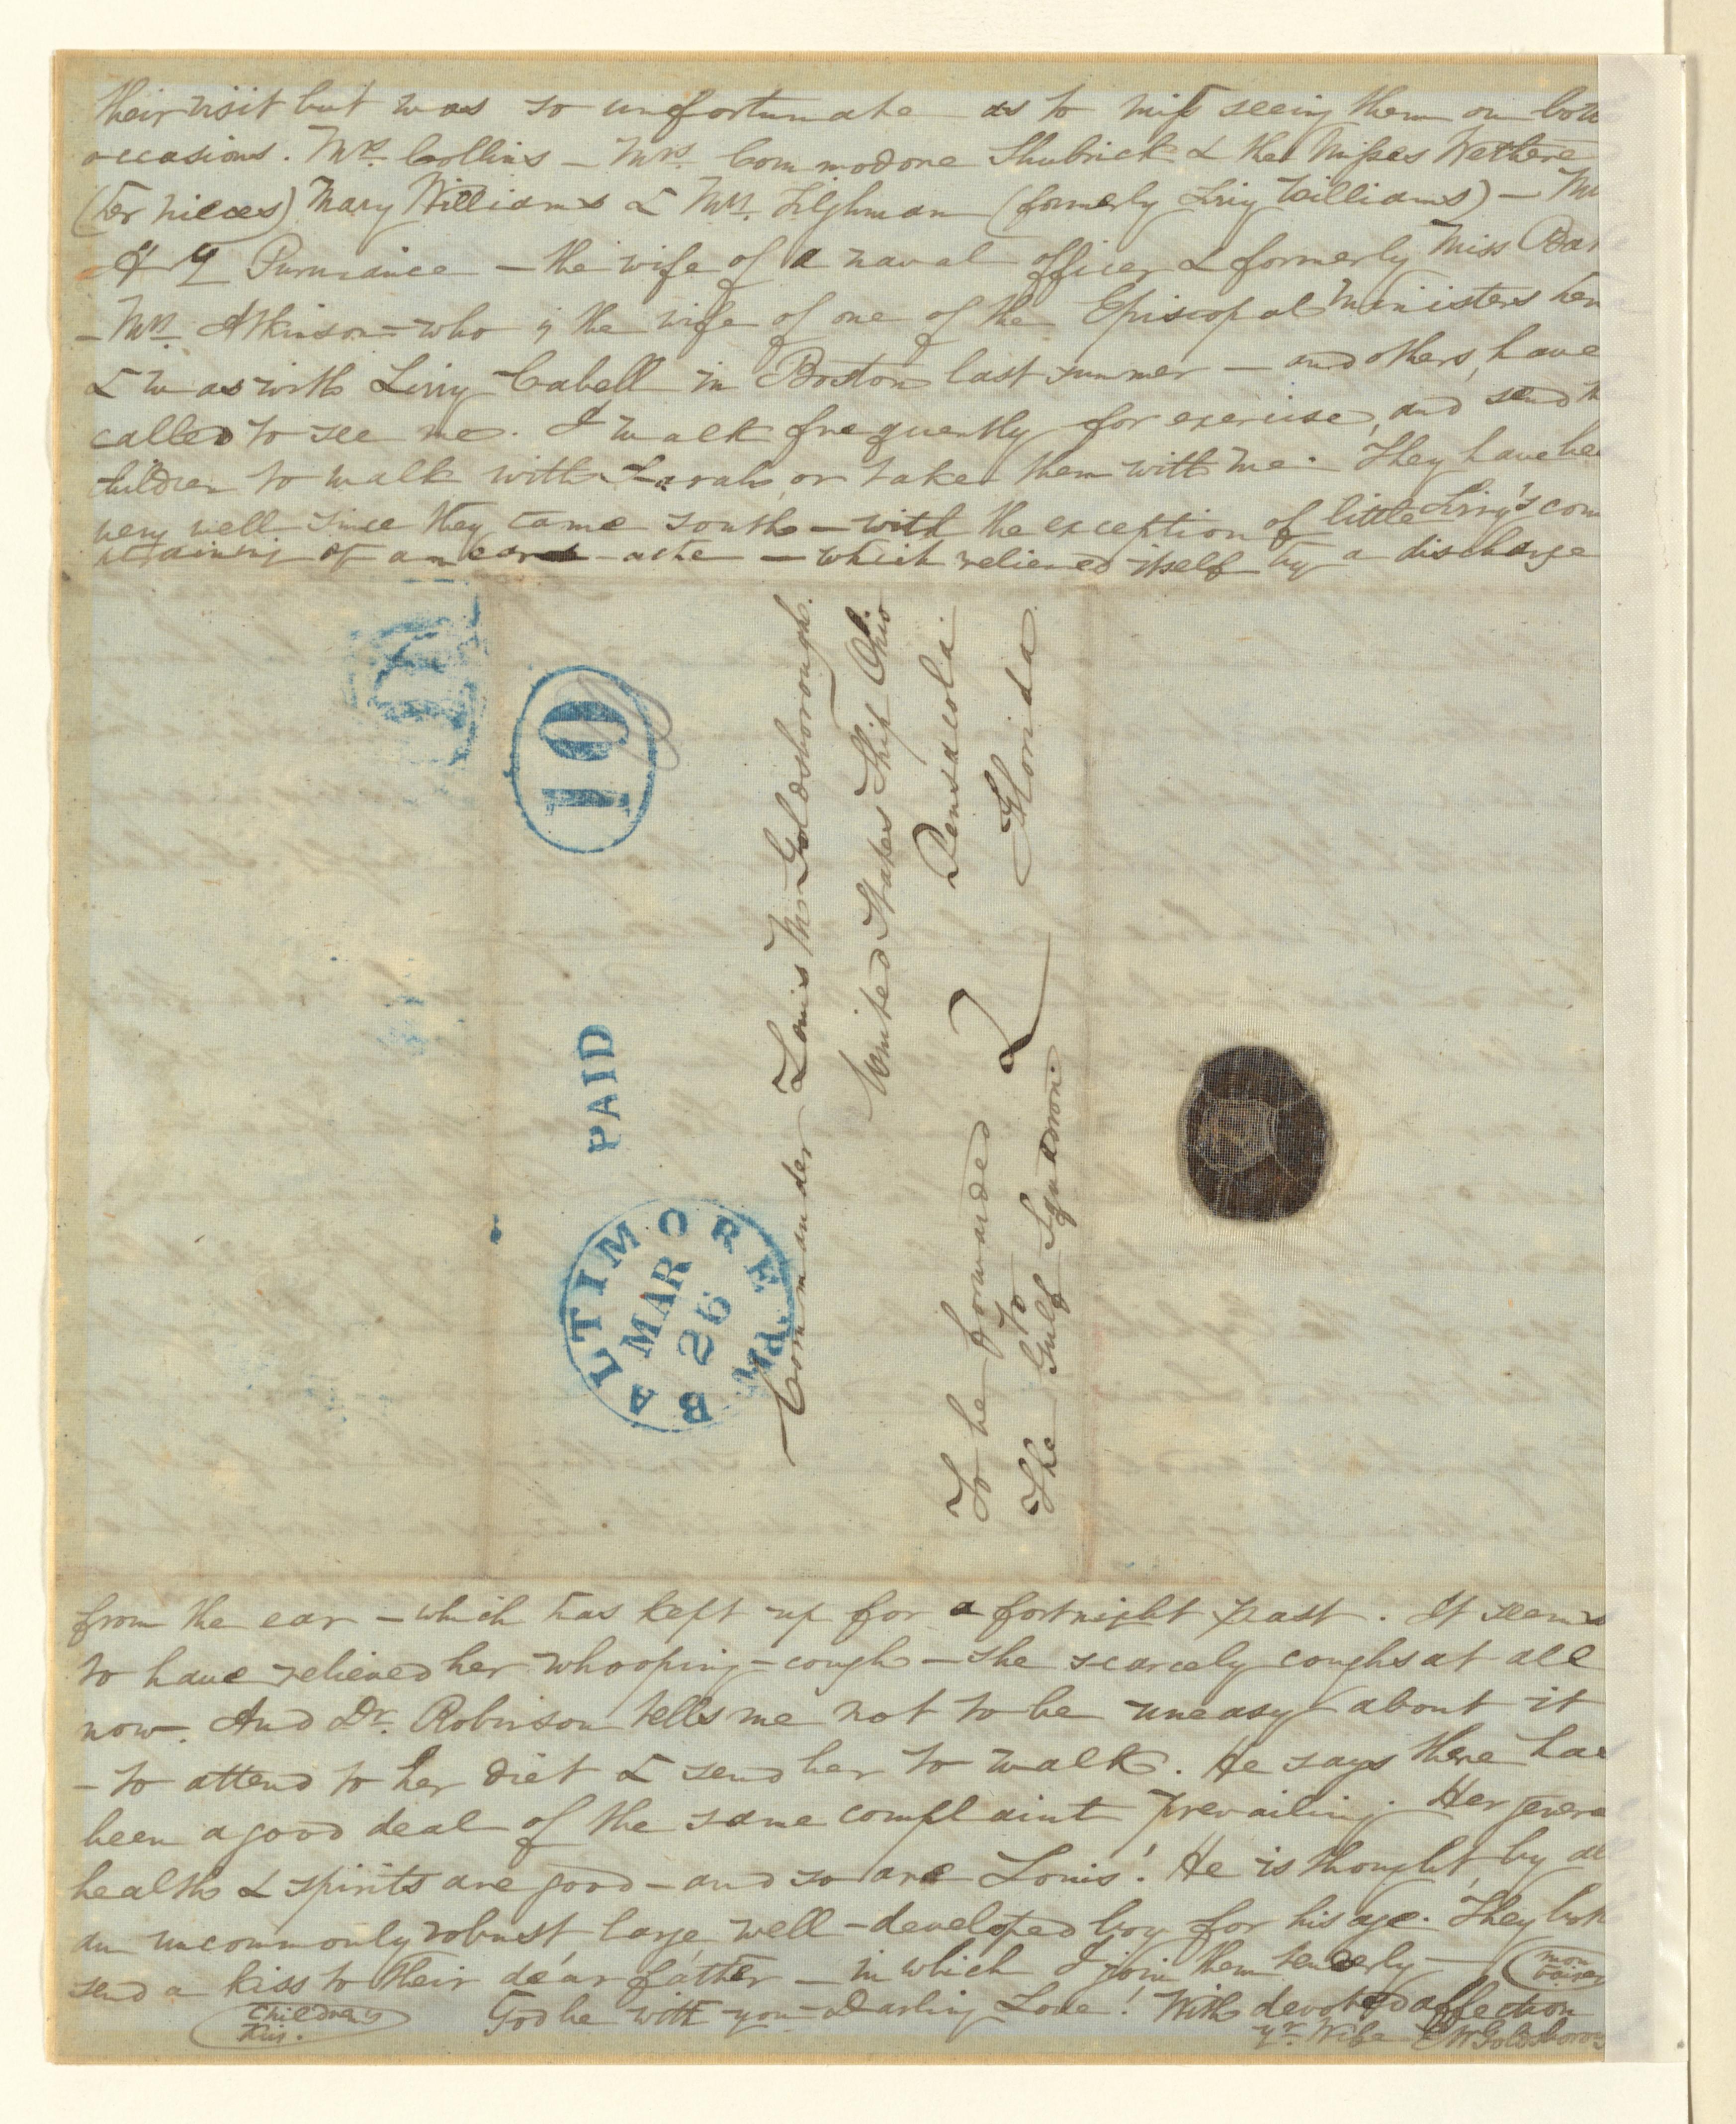 their visit but was so unfortunate as to miss seeing them on both
occasions. Mrs. Collins – Mrs. Commodore Shubrick & the Misses Wethere
(her nieces) Mary Williams & Mrs. Tilghman (formerly Lizzy Williams) –
H Y Purviance – the wife of a naval officer & formerly Miss
– Mrs Atkinson – who is the wife of one of the Episcopal ministers here
& was with Lizzy Cabell in Boston last summer – and others, have
called to see me. I walk frequently for exercise, and send
children to walk with Sarah, or take them with me. They have
very well since they came south – with the exception of little Lizzy's com
plaining of an ear-ache – which relieved itself by a discharge
10
PAID
BALTIMORE Md.
MAR
26
Commander Louis M. Goldsborough.
United States Ship Ohio
Pensacola.
Florida.
To be forwarded
to
The Gulf Squadron.
from the ear – which has kept up for a fortnight past. It seems
to have relieved her whooping-cough – she scarcely coughs at all
now. And Dr. Robinson tells me not to be uneasy about it
– to attend to her diet & send her to walk. He says there has
been a good deal of the same complaint prevailing. Her genera
health & spirits are good – and so are Louis'. He is thought, by al
an uncommonly robust, large, well-developed boy for his age. They both
send a kiss to their dear father – in which I join them tenderly –
Children's
Kiss.
God be with you – Darling Love! With devoted affection
yr. Wife E W Goldsborou